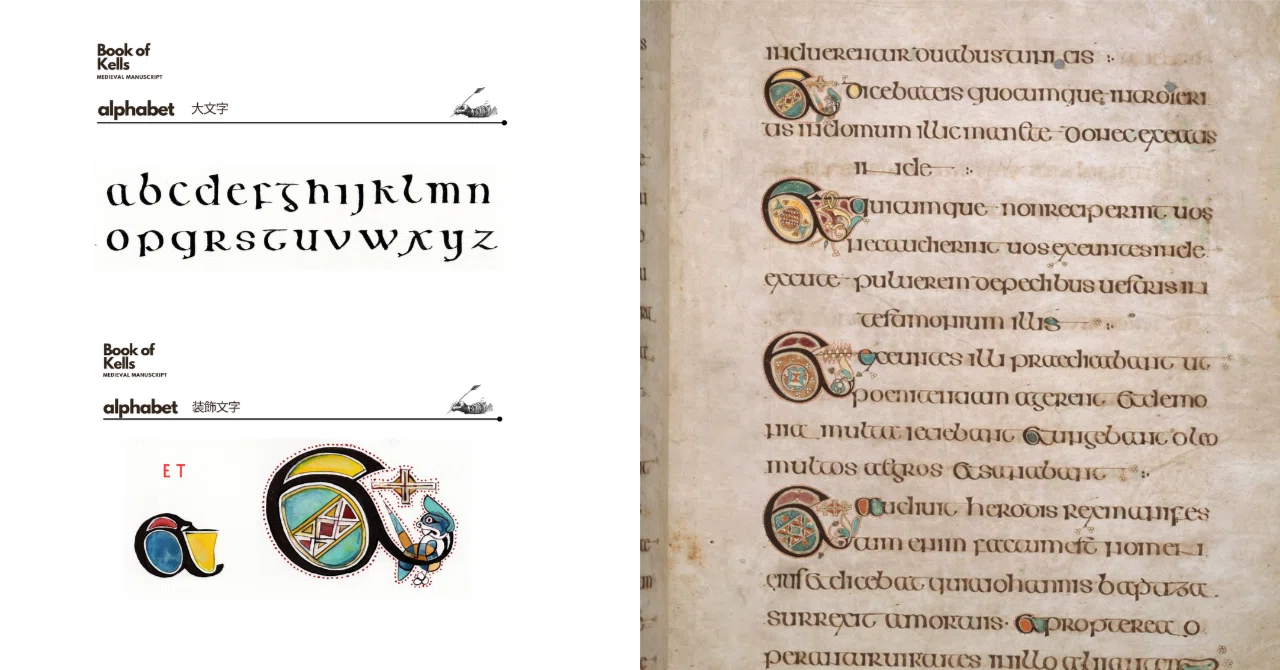 Book of
Kells
MEDIEVAL MANUSCRIPT
alphabet 大文字
abcdefghijklmn
opqrstuvwxyz
Book of
Kells
MEDIEVAL MANUSCRIPT
alphabet 装飾文字
ET
induerentur duabus tunicis
Et dicebat eis quocumque introieri
tis in domum illic manete donec exeatis
inde
Et quicumque non receperint uos
nec audierint uos exeuntes inde
excute puluerem de pedibus uestris in
testimonium illis
Et exeuntes illi praedicabant ut
poenitentiam agerent Et demo
nia multa ieciebant Et ungebant oleo
multos aegros Et sanabant
Et audiuit herodis rex manifes
tum enim factum est nomen
eius Et dicebat quia iohannis baptiza
surrexit a mortuis Et propterea o
perantur uirtutes in illo alii autem